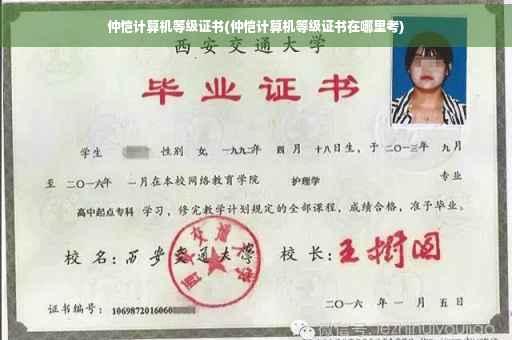 仲恺计算机等级证书(仲恺计算机等级证书在哪里考)
西安交通大学
毕业证书
学生 性别 女, 一九九二年 四 月 十八日生, 于 二〇一三年 九月
至 二〇一六年 一月在本校网络教育学院 护理学 专业
高中起点专科 学习, 修完教学计划规定的全部课程, 成绩合格, 准予毕业。
校 名: 西安交通大学 校 长: 王树国
西安交通大学
证书编号: 1069872016060
二〇一六 年 一 月 五 日
微信号: jezhihuiyoujiao